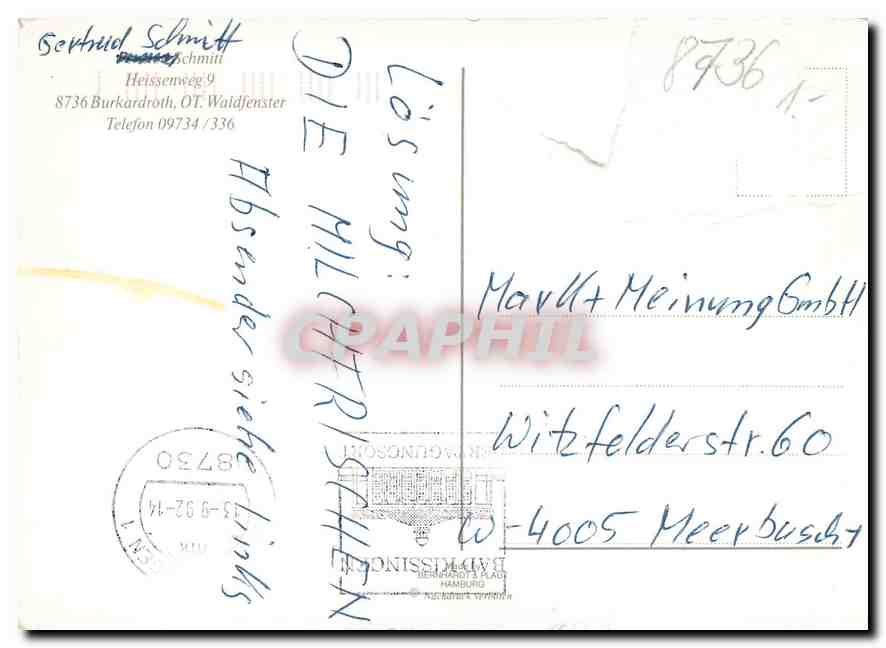 Gertrud Schmitt
Schmitt
Heissenweg 9
8736 Burkardroth, OT. Waldfenster
Telefon 09734/336
Lösung:
DIE MILCHFRISCHEN
Absender siehe links
8736
1.-
Markt + Meinung GmbH
Witzfelderstr. 60
W-4005 Meerbusch 1
CPAPHIL
8730
-9.92-14
TAGUNGSORT
BAD KISSINGEN
BERNHARDT & PLAU
HAMBURG
© Nachdruck verboten